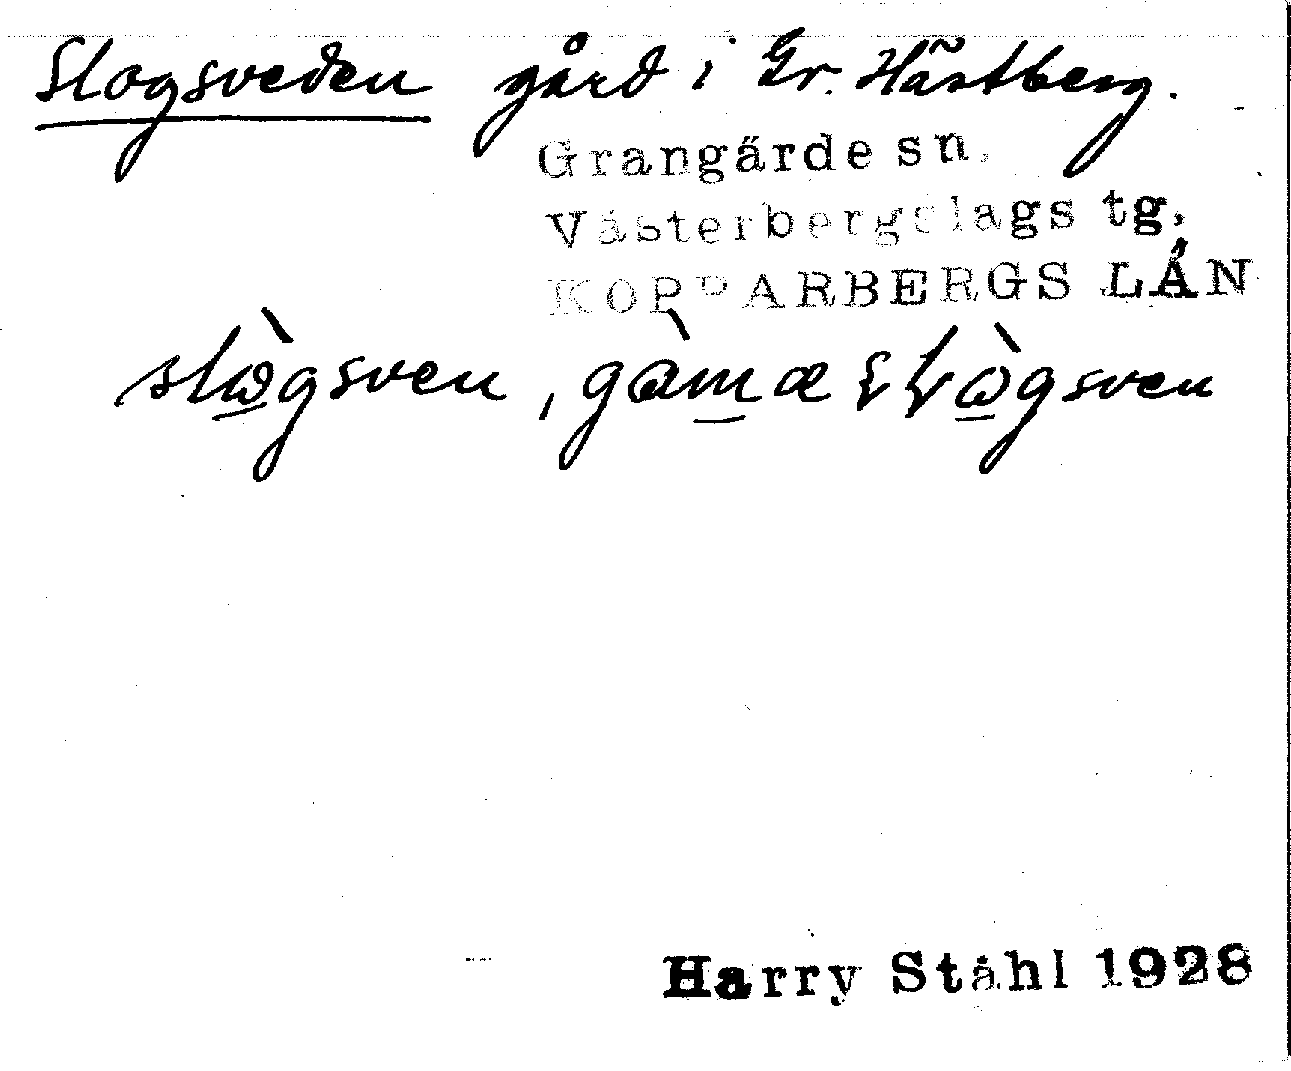 Slogsveden gård i Gr. Hästberg.
Grangärde sn.
Västerbergslags tg,
KOPPARBERGS LÄN
slògsven, gàmæ slògsven
Harry Ståhl 1928